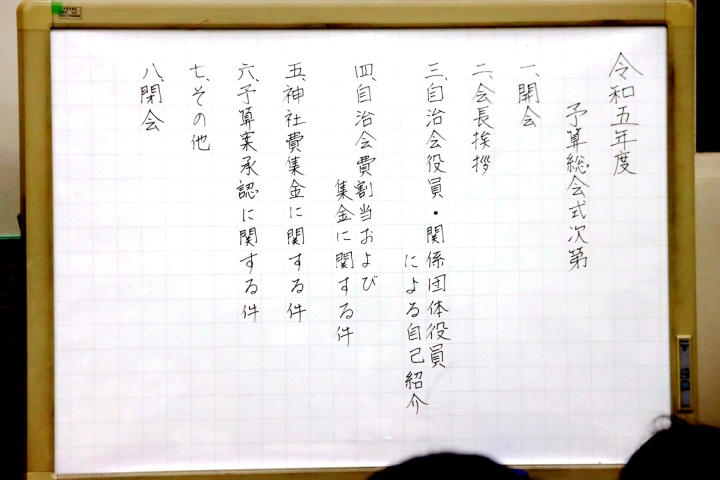 令和五年度
予算総会式次第
一、開会
二、会長挨拶
三、自治会役員・関係団体役員
による自己紹介
四、自治会費割当および
集金に関する件
五、神社費集金に関する件
六、予算案承認に関する件
七、その他
八、閉会